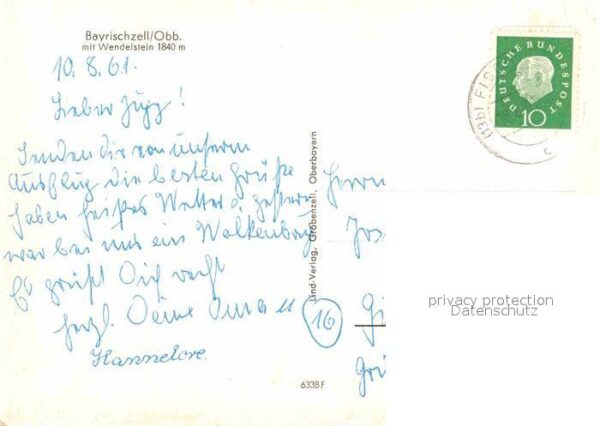 Bayrischzell/Obb.
mit Wendelstein 1840 m
10.8.61.
Lieber
Senden Dir von unserm
Ausflug die besten Grüße
haben heißes Wetter u. gestern
war bei uns ein Wolkenbruch
Es grüßt Dich recht
herzl. Deine Oma u
Hannelore
Lind-Verlag, Gröbenzell, Oberbayern
6338 F
DEUTSCHE BUNDESPOST
10
(13b) FIS
Herrn
Jos
16
Gi
privacy protection
Datenschutz